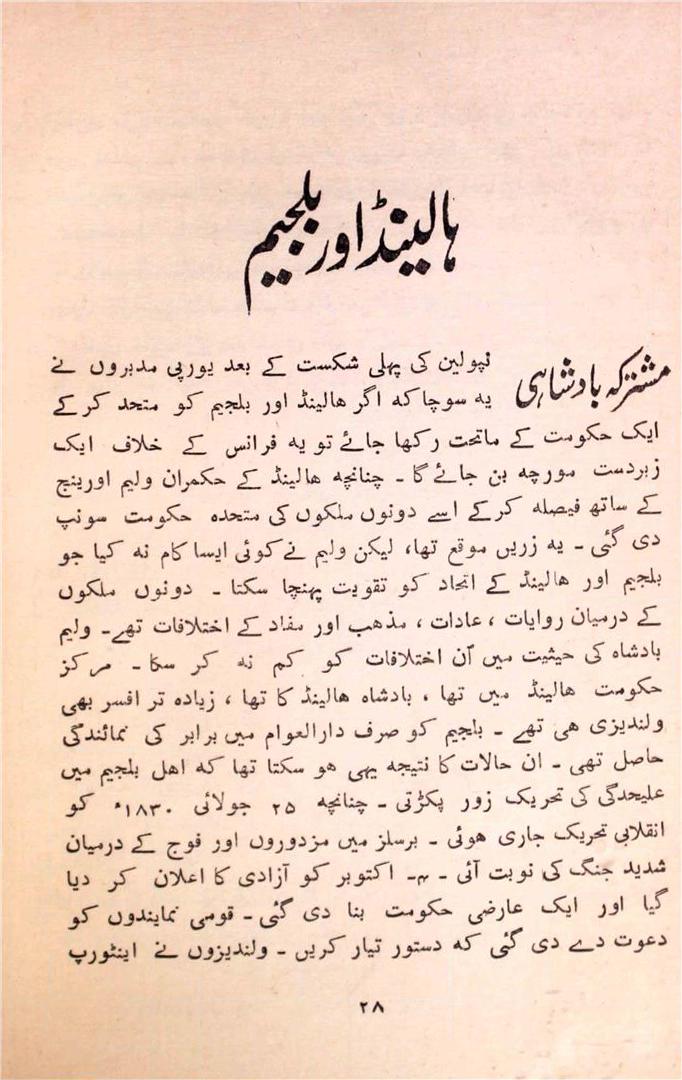 ہالینڈ اور بلجیم
مشترکہ بادشاہی
نپولین کی پہلی شکست کے بعد یورپی مدبروں نے
یہ سوچا کہ اگر ھالینڈ اور بلجیم کو متحد کر کے
ایک حکومت کے ماتحت رکھا جائے تو یہ فرانس کے خلاف ایک
زبردست مورچہ بن جائے گا ۔ چنانچہ ھالینڈ کے حکمران ولیم اورینج
کے ساتھ فیصلہ کر کے اسے دونوں ملکوں کی متحدہ حکومت سونپ
دی گئی ۔ یہ زریں موقع تھا، لیکن ولیم نے کوئی ایسا کام نہ کیا جو
بلجیم اور ھالینڈ کے اتحاد کو تقویت پہنچا سکتا ۔ دونوں ملکوں
کے درمیان روایات ، عادات ، مذھب اور مفاد کے اختلافات تھے۔ ولیم
بادشاہ کی حیثیت میں اُن اختلافات کو کم نہ کر سکا ۔ مرکز
حکومت ھالینڈ میں تھا ، بادشاہ ھالینڈ کا تھا ، زیادہ تر افسر بھی
ولندیزی ھی تھے ۔ بلجیم کو صرف دارالعوام میں برابر کی نمائندگی
حاصل تھی ۔ ان حالات کا نتیجہ یہی ھو سکتا تھا کہ اھل بلجیم میں
علیحدگی کی تحریک زور پکڑتی ۔ چنانچہ ۲۵ جولائی ۱۸۳۰ء کو
انقلابی تحریک جاری ھوئی ۔ برسلز میں مزدوروں اور فوج کے درمیان
شدید جنگ کی نوبت آئی ۔ ۴۔ اکتوبر کو آزادی کا اعلان کر دیا
گیا اور ایک عارضی حکومت بنا دی گئی ۔ قومی نمایندوں کو
دعوت دے دی گئی کہ دستور تیار کریں ۔ ولندیزوں نے اینٹورپ
۲۸